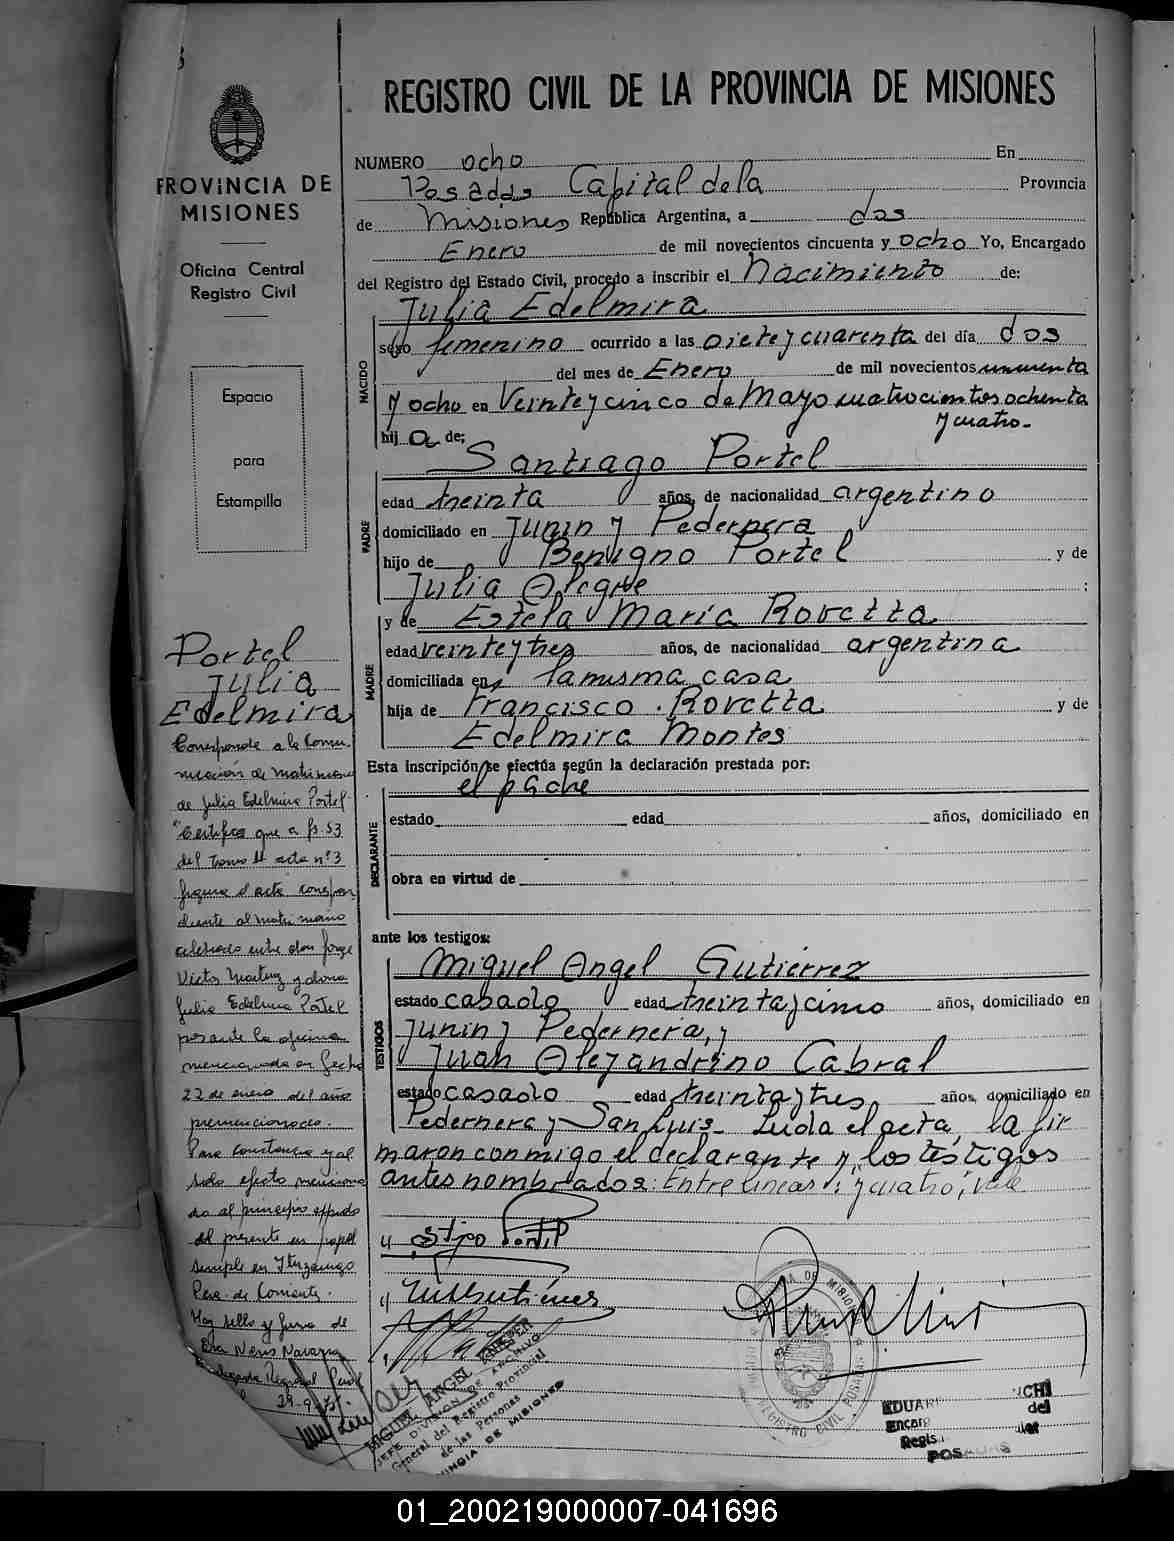 REGISTRO CIVIL DE LA PROVINCIA DE MISIONES
PROVINCIA DE
MISIONES
Oficina Central
Registro Civil
Espacio
para
Estampilla
NUMERO ocho En
Posadas Capital de la Provincia
de Misiones República Argentina, a dos
Enero de mil novecientos cincuenta y ocho Yo, Encargado
del Registro del Estado Civil, procedo a inscribir el nacimiento de:
Julia Edelmira
NACIDO
sexo femenino ocurrido a las siete y cuarenta del día dos
del mes de Enero de mil novecientos cincuenta
y ocho en Veinte y cinco de Mayo cuatrocientos ochenta
y cuatro.-
hij a de:
Santiago Portel
PADRE
edad treinta años, de nacionalidad argentino
domiciliado en Junin y Pedernera
hijo de Benigno Portel y de
Julia Alegre ;
y de Estela María Rovetta
MADRE
edad veinte y tres años, de nacionalidad argentina
domiciliada en la misma casa
hija de Francisco Rovetta y de
Edelmira Montes
Esta inscripción se efectúa según la declaración prestada por:
el padre
DECLARANTE
estado edad años, domiciliado en
obra en virtud de
ante los testigos:
Miguel Angel Gutierrez
TESTIGOS
estado casado edad treinta y cinco años, domiciliado en
Junin y Pedernera, y
Juan Alejandrino Cabral
estado casado edad treinta y tres años, domiciliado en
Pedernera y San Luis.- Leida el acta, la fir
maron conmigo el declarante y los testigos
antes nombrados: Entre lineas: y cuatro; vale
Portel
Julia
Edelmira
Corresponde a la Comu-
nicación de matrimonio
de Julia Edelmira Portel
"Certifico que a fs. 53
del tomo acta nº 3
figura el acta correspon
diente al matrimonio
celebrado entre don Jorge
Victor y doña
Julia Edelmira Portel
por ante la oficina
mencionada en fecha
22 de enero del año
premencionado.
Para constancia y al
solo efecto menciona
do al principio expido
el presente en papel
simple en Ituzaingo
Pcia. de Corrientes.
Hay sello y firma de
MIGUEL ANGEL
JEFE DIVISION DE ARCHIVO
General del Registro Provincial
de las Personas
PROVINCIA DE MISIONES
REGISTRO CIVIL POSADAS
EDUAR UCHI
Encarg del
Regis
POSADAS
01_200219000007-041696